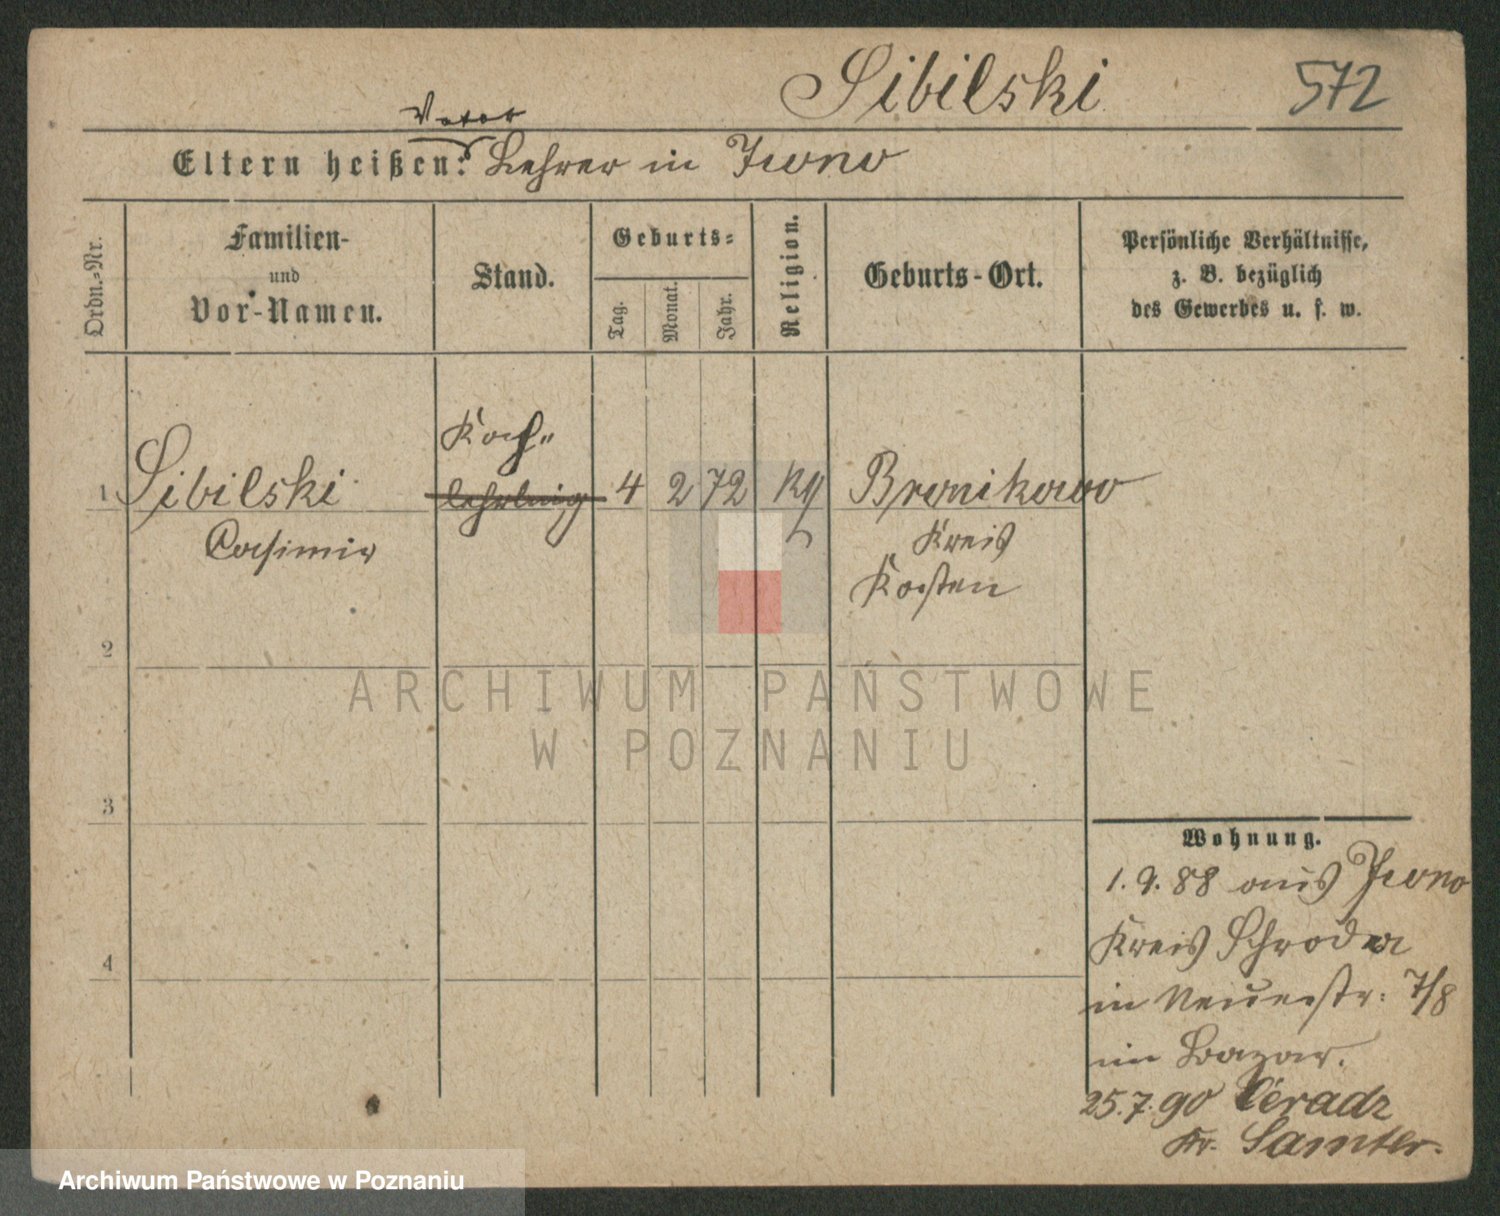 Sibilski 572
Vater
Eltern heißen: Lehrer in Iwno
Ordn.-Nr.
Familien-
und
Vor-Namen.
Stand.
Geburts-
Tag.
Monat.
Jahr.
Religion.
Geburts-Ort.
Persönliche Verhältnisse,
z. B. bezüglich
des Gewerbes u. s. w.
Koch-
1 Sibilski lehrling 4 2 72 Bronikowo
Casimir Kreis
Kosten
2
3
4
ARCHIWUM PAŃSTWOWE
W POZNANIU
Wohnung.
1.9.88 aus Iwno
Kreis Schroda
in Neuestr: 7/8
im Bazar.
25.7.90
Kr. Samter.
Archiwum Państwowe w Poznaniu